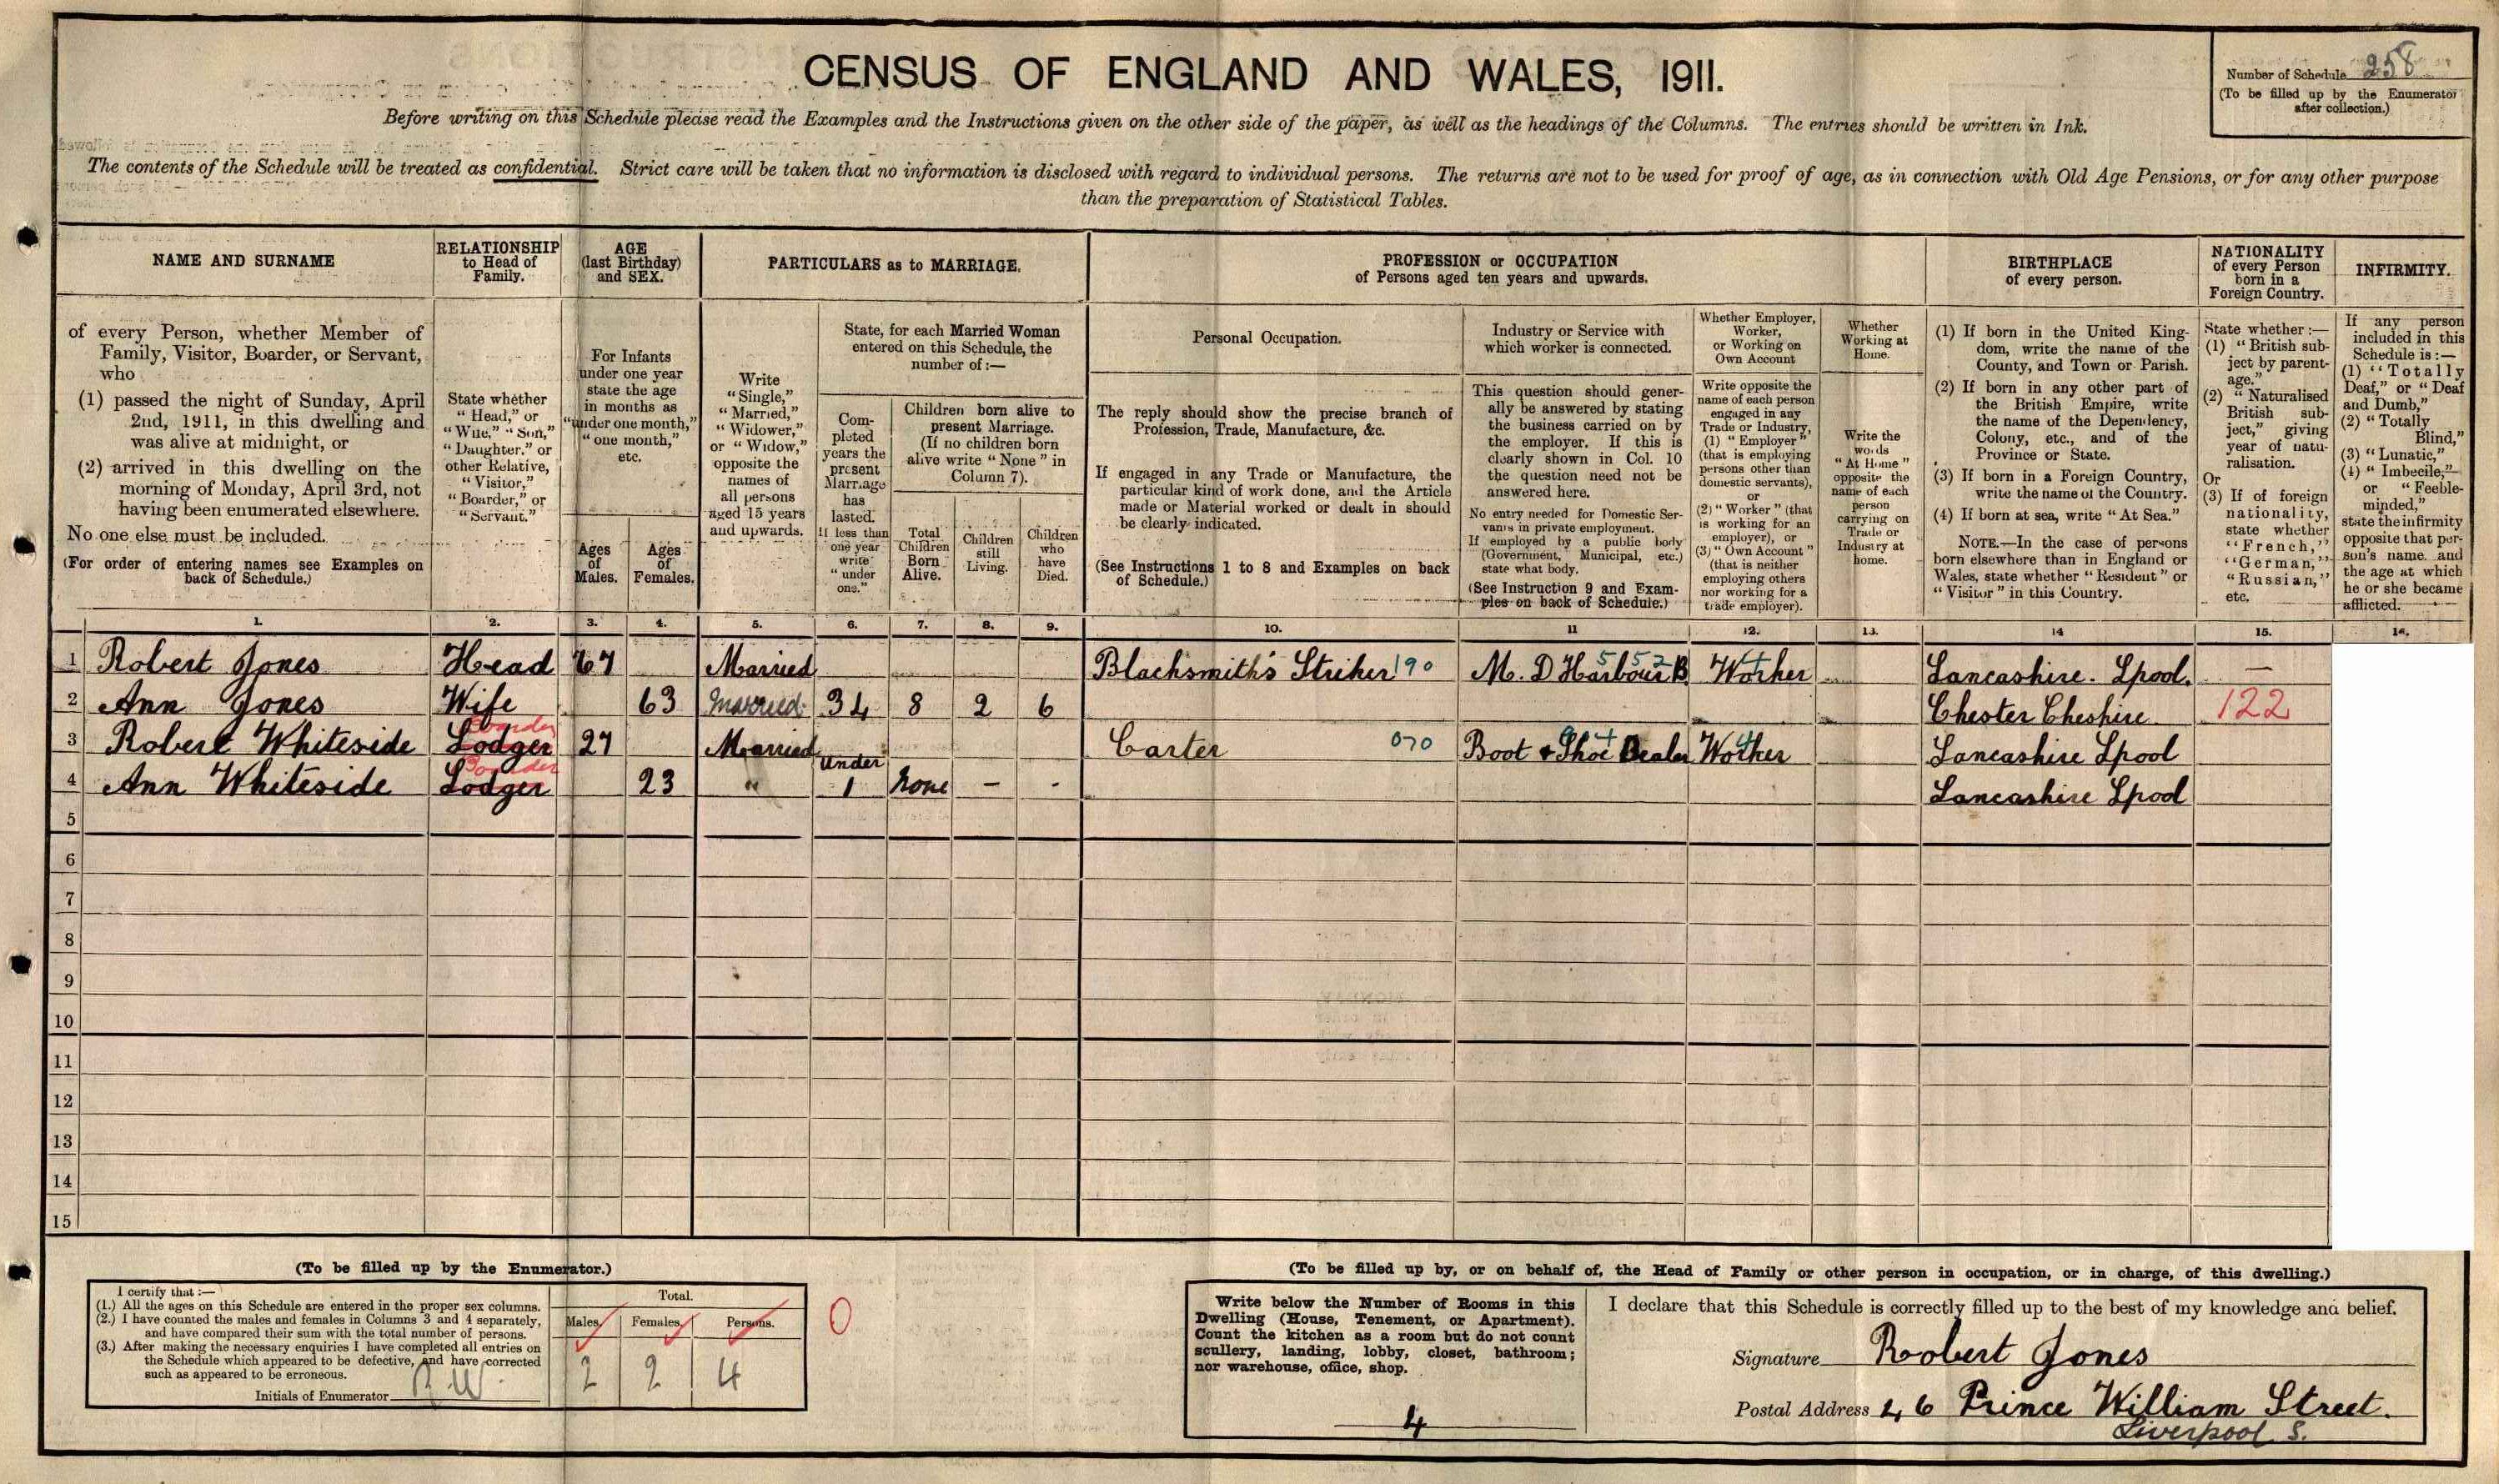 CENSUS OF ENGLAND AND WALES, 1911.
Number of Schedule 258
(To be filled up by the Enumerator
after collection.)
Before writing on this Schedule please read the Examples and the Instructions given on the other side of the paper, as well as the headings of the Columns. The entries should be written in Ink.
The contents of the Schedule will be treated as confidential. Strict care will be taken that no information is disclosed with regard to individual persons. The returns are not to be used for proof of age, as in connection with Old Age Pensions, or for any other purpose
than the preparation of Statistical Tables.
NAME AND SURNAME
of every Person, whether Member of
Family, Visitor, Boarder, or Servant,
who
(1) passed the night of Sunday, April
2nd, 1911, in this dwelling and
was alive at midnight, or
(2) arrived in this dwelling on the
morning of Monday, April 3rd, not
having been enumerated elsewhere.
No one else must be included.
(For order of entering names see Examples on
back of Schedule.)
RELATIONSHIP
to Head of
Family.
State whether
"Head," or
"Wife," "Son,"
"Daughter," or
other Relative,
"Visitor,"
"Boarder," or
"Servant."
AGE
(last Birthday)
and SEX.
For Infants
under one year
state the age
in months as
"under one month,"
"one month,"
etc.
Ages
of
Males.
Ages
of
Females.
PARTICULARS as to MARRIAGE.
Write
"Single,"
"Married,"
"Widower,"
or "Widow,"
opposite the
names of
all persons
aged 15 years
and upwards.
State, for each Married Woman
entered on this Schedule, the
number of:—
Com-
pleted
years the
present
Marriage
has
lasted.
If less than
one year
write
"under
one."
Children born alive to
present Marriage.
(If no children born
alive write "None" in
Column 7).
Total
Children
Born
Alive.
Children
still
Living.
Children
who
have
Died.
PROFESSION or OCCUPATION
of Persons aged ten years and upwards.
Personal Occupation.
The reply should show the precise branch of
Profession, Trade, Manufacture, &c.
If engaged in any Trade or Manufacture, the
particular kind of work done, and the Article
made or Material worked or dealt in should
be clearly indicated.
(See Instructions 1 to 8 and Examples on back
of Schedule.)
Industry or Service with
which worker is connected.
This question should gener-
ally be answered by stating
the business carried on by
the employer. If this is
clearly shown in Col. 10
the question need not be
answered here.
No entry needed for Domestic Ser-
vants in private employment.
If employed by a public body
(Government, Municipal, etc.)
state what body.
(See Instruction 9 and Exam-
ples on back of Schedule.)
Whether Employer,
Worker,
or Working on
Own Account
Write opposite the
name of each person
engaged in any
Trade or Industry,
(1) "Employer"
(that is employing
persons other than
domestic servants),
or
(2) "Worker" (that
is working for an
employer), or
(3) "Own Account"
(that is neither
employing others
nor working for a
trade employer).
Whether
Working at
Home.
Write the
words
"At Home"
opposite the
name of each
person
carrying on
Trade or
Industry at
home.
BIRTHPLACE
of every person.
(1) If born in the United King-
dom, write the name of the
County, and Town or Parish.
(2) If born in any other part of
the British Empire, write
the name of the Dependency,
Colony, etc., and of the
Province or State.
(3) If born in a Foreign Country,
write the name of the Country.
(4) If born at sea, write "At Sea."
NOTE.—In the case of persons
born elsewhere than in England or
Wales, state whether "Resident" or
"Visitor" in this Country.
NATIONALITY
of every Person
born in a
Foreign Country.
State whether:—
(1) "British sub-
ject by parent-
age."
(2) "Naturalised
British sub-
ject," giving
year of natu-
ralisation.
Or
(3) If of foreign
nationality,
state whether
"French,"
"German,"
"Russian,"
etc.
INFIRMITY.
If any person
included in this
Schedule is:—
(1) "Totally
Deaf," or "Deaf
and Dumb,"
(2) "Totally
Blind,"
(3) "Lunatic,"
(4) "Imbecile,"
or "Feeble-
minded,"
state the infirmity
opposite that per-
son's name, and
the age at which
he or she became
afflicted.
1. 2. 3. 4. 5. 6. 7. 8. 9. 10. 11 12. 13. 14 15. 16.
1 Robert Jones Head 67 Married Blacksmith's Striker 190 M. D Harbour B 552 Worker Lancashire. Lpool. —
2 Ann Jones Wife 63 Married 34 8 2 6 Chester Cheshire 122
3 Robert Whiteside Lodger Boarder 27 Married Carter 070 Boot & Shoe Dealer Worker Lancashire Lpool
4 Ann Whiteside Lodger Boarder 23 " under 1 None - - Lancashire Lpool
5
6
7
8
9
10
11
12
13
14
15
(To be filled up by the Enumerator.)
I certify that:—
(1.) All the ages on this Schedule are entered in the proper sex columns.
(2.) I have counted the males and females in Columns 3 and 4 separately,
and have compared their sum with the total number of persons.
(3.) After making the necessary enquiries I have completed all entries on
the Schedule which appeared to be defective, and have corrected
such as appeared to be erroneous.
Initials of Enumerator R.W.
Total.
Males. Females. Persons.
2 2 4
0
(To be filled up by, or on behalf of, the Head of Family or other person in occupation, or in charge, of this dwelling.)
Write below the Number of Rooms in this
Dwelling (House, Tenement, or Apartment).
Count the kitchen as a room but do not count
scullery, landing, lobby, closet, bathroom;
nor warehouse, office, shop.
4
I declare that this Schedule is correctly filled up to the best of my knowledge and belief.
Signature Robert Jones
Postal Address 46 Prince William Street.
Liverpool S.